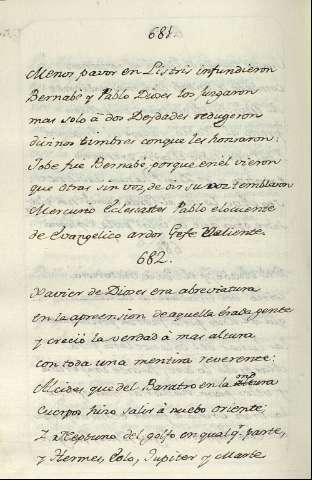 681.
Menos pavor en Listris infundieron
Bernabè y Pablo Dioses los juzgaron
mas solo à dos Deydades redugeron
divinos timbres conque les honraron:
Jobe fuè Bernabè, porque en èl vieron
que otras sin voz, de oir su voz temblaron
Mercurio Eclesiastes Pablo eloquente
de Evangelico ardor Gefe Valiente.
682.
Xavier de Dioses era abreviatura
en la aprension de aquella èraba gente
y creciò la verdad à mas altura
con toda una mentira reverente:
Alcides que del Baratro en la
cuerpos hizo salir à nuebo oriente,
Neptuno del golfo en qualq.ª parte,
y Hermes, Eolo, Jupiter y Marte